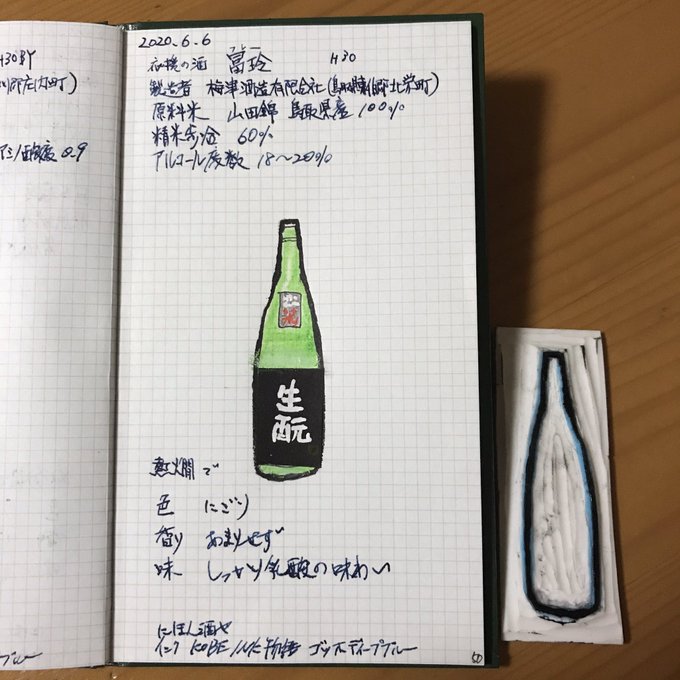 H30BY
アミノ酸度 0.9
2020.6.6
フレー
冨玲 H30
製造者 梅津酒造有限会社(鳥取県東伯郡北栄町)
原料米 山田錦 鳥取県産 100%
精米歩合 60%
アルコール度数 18〜20%
生酛
熱燗で
色 にごり
香り あまりせず
味 しっかり乳酸の味わい
にほん酒や
インク KOBE INK物語 ディープブルー
50